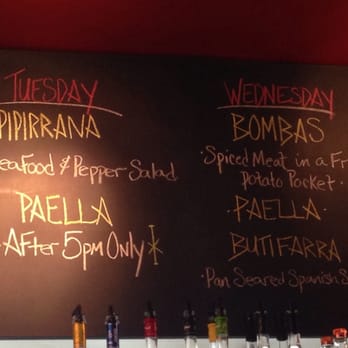 TUESDAY
PIPIRRANA
Seafood & Pepper Salad
PAELLA
• After 5pm Only *
WEDNESDAY
BOMBAS
• Spiced Meat in a
Potato Pocket •
• PAELLA •
BUTIFARRA
• Pan Seared Spanish